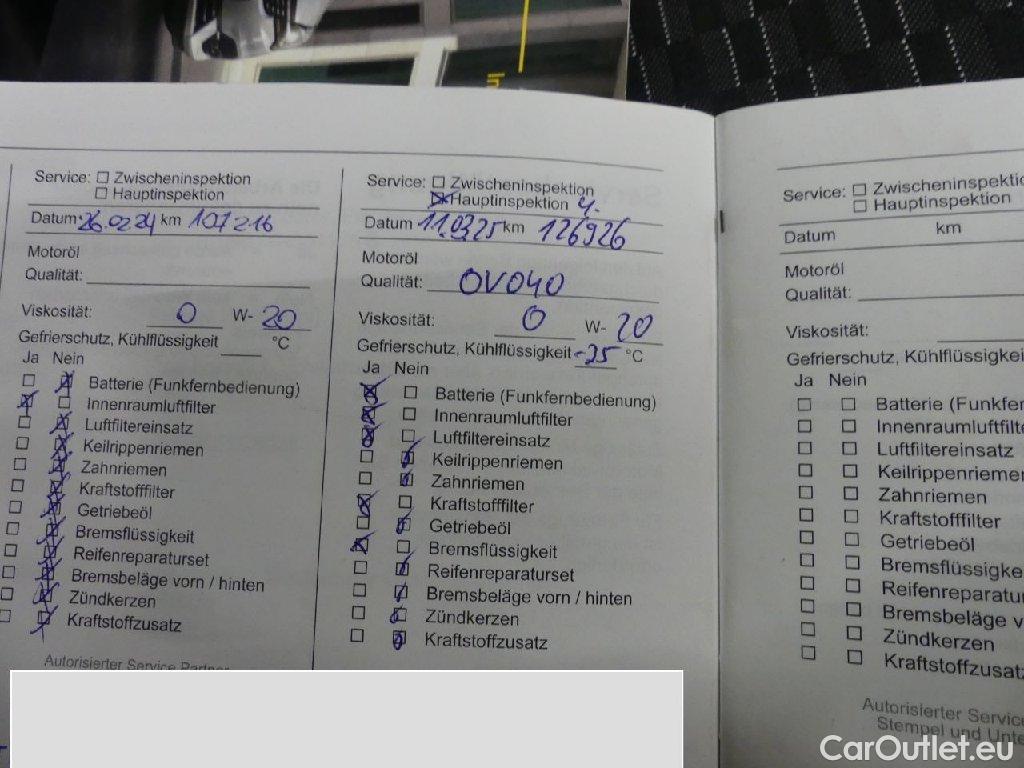 In
Service: Zwischeninspektion
Hauptinspektion
Datum 26.02.24 km 107216
Motoröl
Qualität:
Viskosität: 0 W- 20
Gefrierschutz, Kühlflüssigkeit °C
Ja Nein
Batterie (Funkfernbedienung)
Innenraumluftfilter
Luftfiltereinsatz
Keilrippenriemen
Zahnriemen
Kraftstofffilter
Getriebeöl
Bremsflüssigkeit
Reifenreparaturset
Bremsbeläge vorn / hinten
Zündkerzen
Kraftstoffzusatz
Autorisierter Service Partner
Service: Zwischeninspektion
Hauptinspektion 4.
Datum 11.03.25 km 126926
Motoröl
Qualität: OV040
Viskosität: 0 W- 20
Gefrierschutz, Kühlflüssigkeit -35 °C
Ja Nein
Batterie (Funkfernbedienung)
Innenraumluftfilter
Luftfiltereinsatz
Keilrippenriemen
Zahnriemen
Kraftstofffilter
Getriebeöl
Bremsflüssigkeit
Reifenreparaturset
Bremsbeläge vorn / hinten
Zündkerzen
Kraftstoffzusatz
Service: Zwischeninspektio
Hauptinspektion
Datum km
Motoröl
Qualität:
Viskosität:
Gefrierschutz, Kühlflüssigkei
Ja Nein
Batterie (Funkfern
Innenraumluftfilte
Luftfiltereinsatz
Keilrippenriemen
Zahnriemen
Kraftstofffilter
Getriebeöl
Bremsflüssigke
Reifenreparatur
Bremsbeläge v
Zündkerzen
Kraftstoffzusatz
Autorisierter Service
Stempel und Unte
CarOutlet.eu